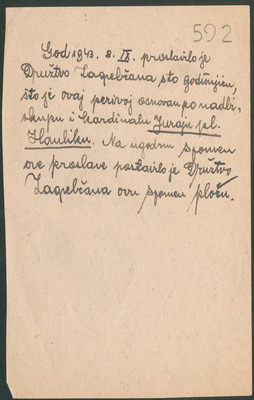 592
God 1943. 8. IX. proslavilo je
Društvo Zagrebčana sto godišnjicu,
što je ovaj perivoj osnovan po nadbi-
skupu i kardinalu Juraju pl.
Hauliku. Na ugodnu spomen
ove proslave postavilo je Društvo
Zagrebčana ovu spomen ploču.